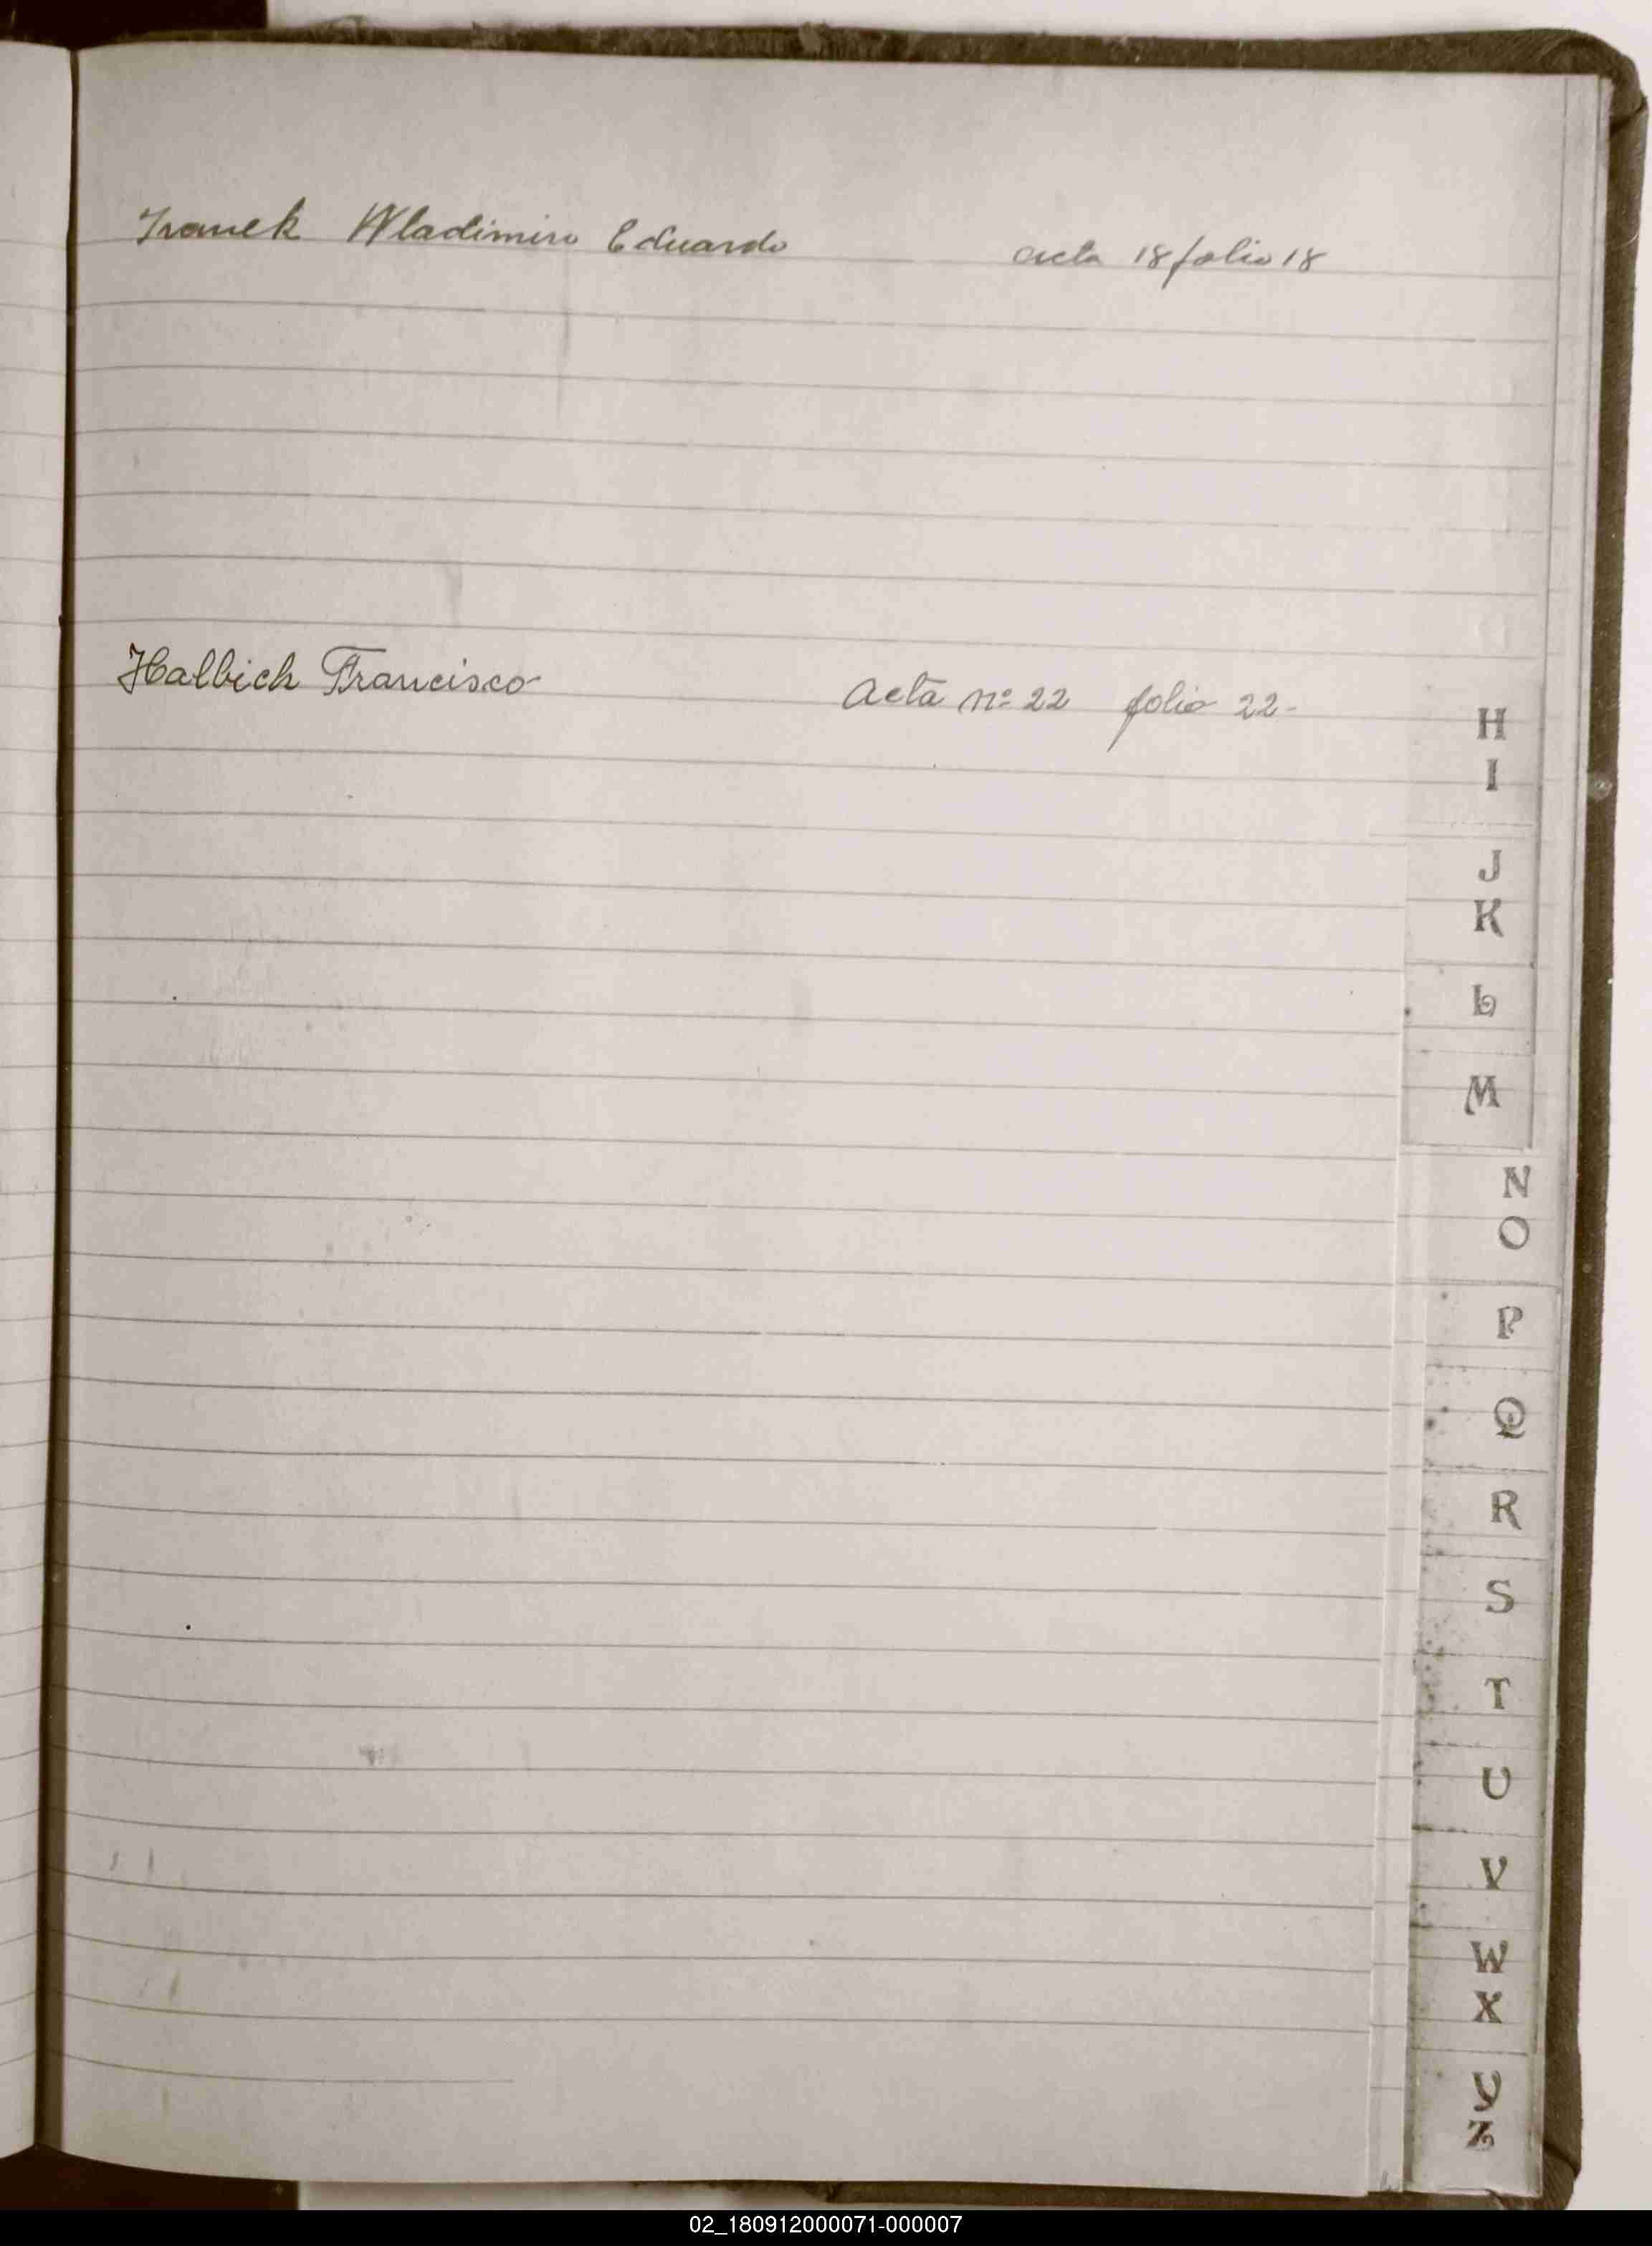 Wladimiro Eduardo acta 18 folio 18
Halbich Francisco Acta nº 22 folio 22-
H
I
J
K
L
M
N
O
P
Q
R
S
T
U
V
W
X
Y
Z
02_180912000071-000007